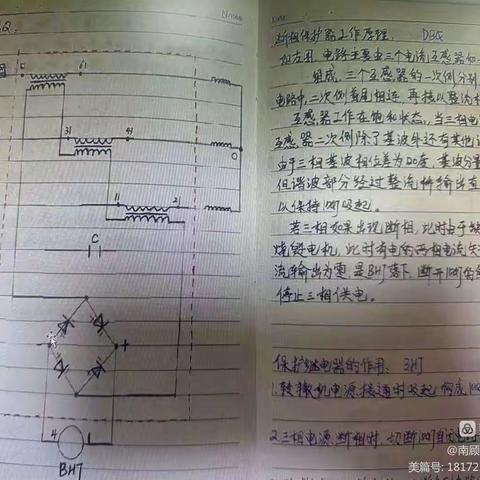 61
31
41
0
11
21
C
+
4
1
BHJ
断相保护器工作原理. DBQ
如左图，电路主要由三个电流互感器和一
组成，三个互感器的一次侧分别
电路中，二次侧首尾相连，再接以整流
互感器工作在饱和状态，当三相电
互感器二次侧除了基波外还有其他
由于三相基波相位差为120度，基波分量
但谐波部分经过整流桥输出直
以保持BHJ吸起。
若三相如果出现断相，此时由于缺
烧毁电机，此时有电的两相电流
流输出为零是BHJ落下，断开1DQJ
停止三相供电。
保护继电器的作用: BHJ
1.转辙机电源接通时吸起
2.三相电源断相时，切断1DQJ自闭
@南顾
美篇号: 18172